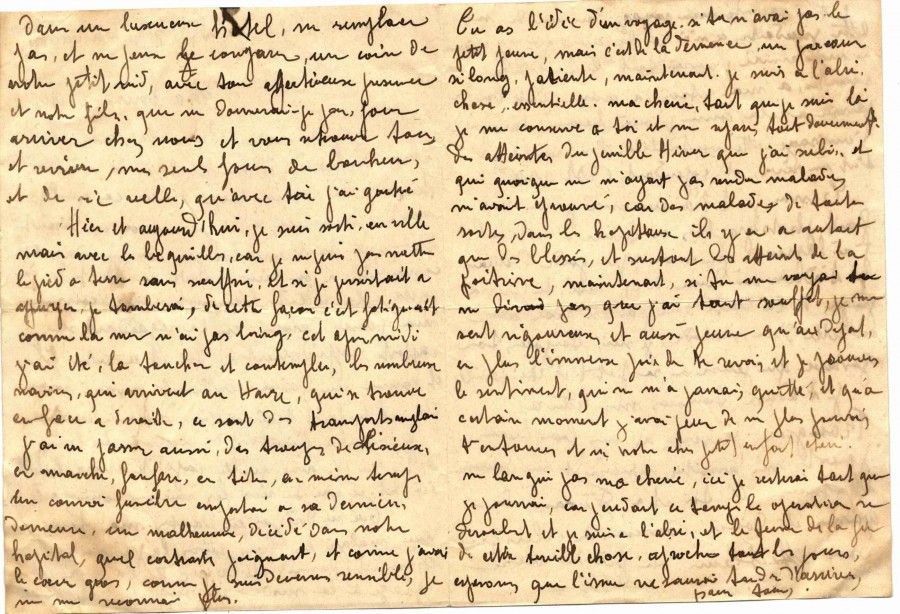 Dans un luxueuse hotel, ne remplace
pas, et ne peux le comparer, un coin de
notre petit nid, avec ton affectueuse presence
et notre fils, que ne donnerais-je pas, pour
arriver chez nous et vous retrouver tous,
et revivre, mes seuls jours de bonheur,
et de vie reelle, qu'avec toi j'ai goutté
Hier et aujourd'hui, je suis sorti, en ville
mais avec les béquilles, car je ne puis pas mettre
le pied a terre sans souffrir, et si je persistait a
appuyer, je tomberai, de cette façon c'est fatiguant
comme la mer n'ai pas loing, cet apri midi
j'ai été, la toucher et contempler, les nombreux
navires, qui arrivent au Havre, qui se trouve
en face a droite, ce sont des transports anglai
j'ai vu passer aussi, des troupes de Lisieux,
en marche, fanfare, en tête, en même temps
un convoi funèbre emportan a sa derniere
demeure, un malheureux, décédé dans notre
hopital, quel contraste poignant, et comme j'avais
le cœur gros, comme je suis devenu sensible, je
ne me reconnai plus.
Tu as l'idée d'un voyage, si tu n'avai pas le
petit jeune, mais c'est de la demence, un parcour
si long, patiente, maintenant je suis a l'abri,
chose essentielle. ma cherie, tant que je suis là
je me conserve a toi et me repare tout doucement
des atteintes du penible Hiver que j'ai subi, et
qui quoique ne m'ayant pas rendu malade,
m'avait éprouvé, car des malades de toute
sortes, dans les hopitaux, ils y en a autant
que des blessés, et surtout les atteints de la
poitrine, maintenant, si tu me voyai tu
ne dirai pas que j'ai tant souffert, je me
sent vigoureux, et aussi jeune qu'au Depat,
en plus l'immense joie de te revoir, et je
le sentiment, qui ne m'a jamais quitté, et qu'a
certain moment j'avai peur de ne plus pouvoir
t'entourer et ni notre cher petit enfant cheri.
ne languit pas ma cherie, ici je resterai tant que
je pourrai, car pendant ce temps les operation se
deroulent et je suis a l'abri, et le Jour de la fin
de cette terrible chose, aproche tous les jours,
esperons que l'issue ne saurai tarder d'arriver,
pour tous.